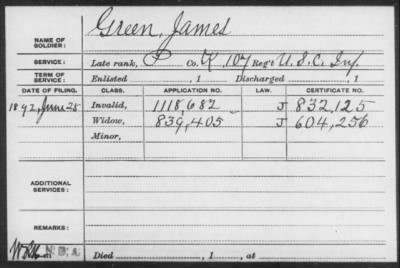 Green, James
NAME OF SOLDIER:
SERVICE: Late rank, P Co. K 107 Reg't U.S.C. Inf.
TERM OF SERVICE: Enlisted , 1 Discharged , 1
DATE OF FILING. CLASS. APPLICATION NO. LAW. CERTIFICATE NO.
1892, June 25 Invalid, 1118,682 J 832,125
Widow, 839,405 J 604,256
Minor,
ADDITIONAL SERVICES:
REMARKS:
Died , 1 , at